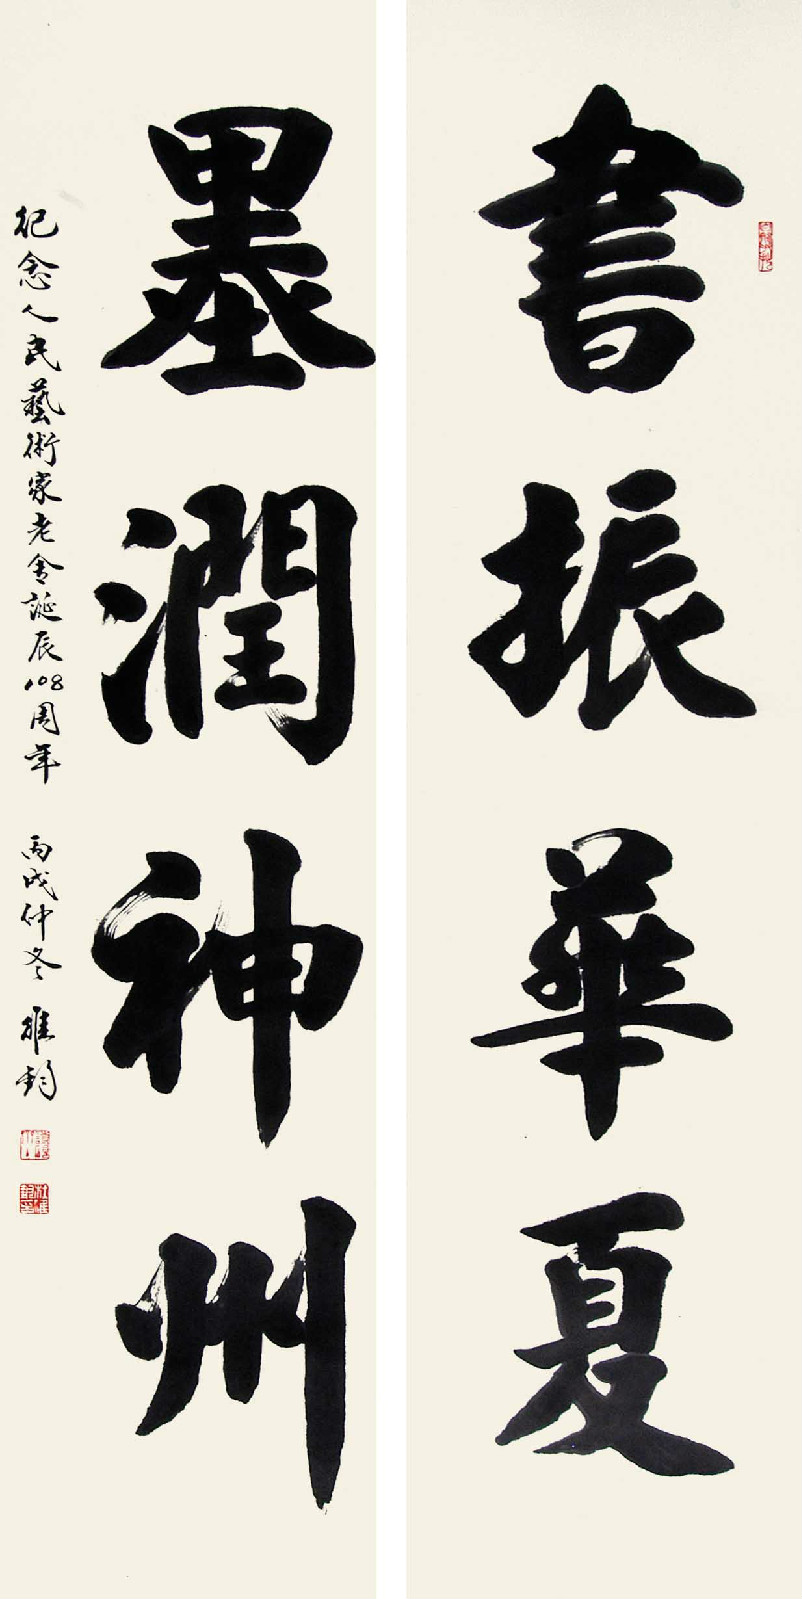 書振華夏
墨潤神州
紀念人民藝術家老舍誕辰108周年
丙戌仲冬 維鈞